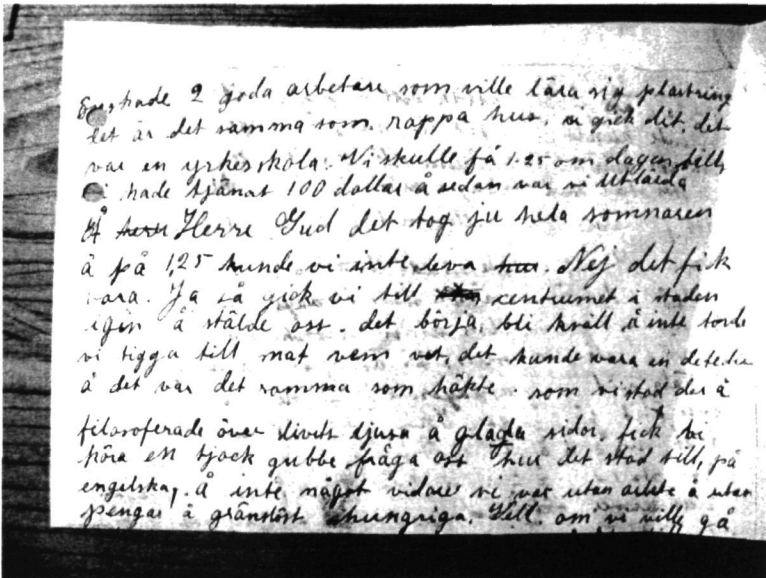 hade 2 goda arbetare som ville lära sig plastring
det är det samma som rappa hus, vi gick dit, det
var en yrkesskola. Vi skulle få 1.25 om dagen tills
vi hade tjänat 100 dollar å sedan var vi Utlärda
Å Herre Gud det tog ju hela sommaren
å på 1,25 kunde vi inte leva. Nej det fick
vara. Ja så gick vi till centrumet i staden
igen å stälde oss. det börja, bli kväll å inte tords
vi tigga till mat vem vet, det kunde vara en
å det var det samma som häkte. som vi stod der å
filosoferade över livets ljusa å glada sidor, fick vi
höra en tjock gubbe fråga oss hur det stod till, på
engelska, å inte något vidare vi var utan arbete å utan
pengar å gränslöst hungriga. Vell. om vi ville gå